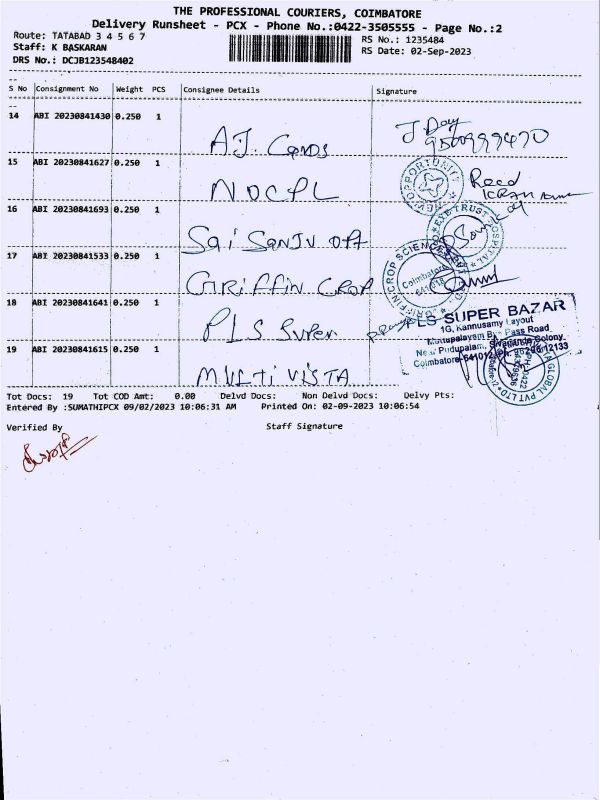 THE PROFESSIONAL COURIERS, COIMBATORE
Delivery Runsheet - PCX - Phone No.:0422-3505555 - Page No.:2
Route: TATABAD 3 4 5 6 7
RS No.: 1235484
Staff: K BASKARAN
RS Date: 02-Sep-2023
DRS No.: DCJB123548402
S No Consignment No Weight PCS Consignee Details Signature
14 ABI 20230841430 0.250 1 A.J. Cards J. Day
15 ABI 20230841627 0.250 1 NDCPL Recd
OPPORTUNITY
16 ABI 20230841693 0.250 1 Sai Sanju
TRUST HOSPITAL
17 ABI 20230841533 0.250 1 Griffin Crop
GRIFFIN CROP SCIENCE
Coimbatore
641018
18 ABI 20230841641 0.250 1 PLS Super
PLS SUPER BAZAR
1G, Kannusamy Layout
Mettupalayam Bye Pass Road
Near Pudupalam, Sivananda Colony
Coimbatore-641012
19 ABI 20230841615 0.250 1 Multi Vista
GLOBAL PVT LTD
Tot Docs: 19 Tot COD Amt: 0.00 Delvd Docs: Non Delvd Docs: Delvy Pts:
Entered By :SUMATHIPCX 09/02/2023 10:06:31 AM Printed On: 02-09-2023 10:06:54
Verified By Staff Signature